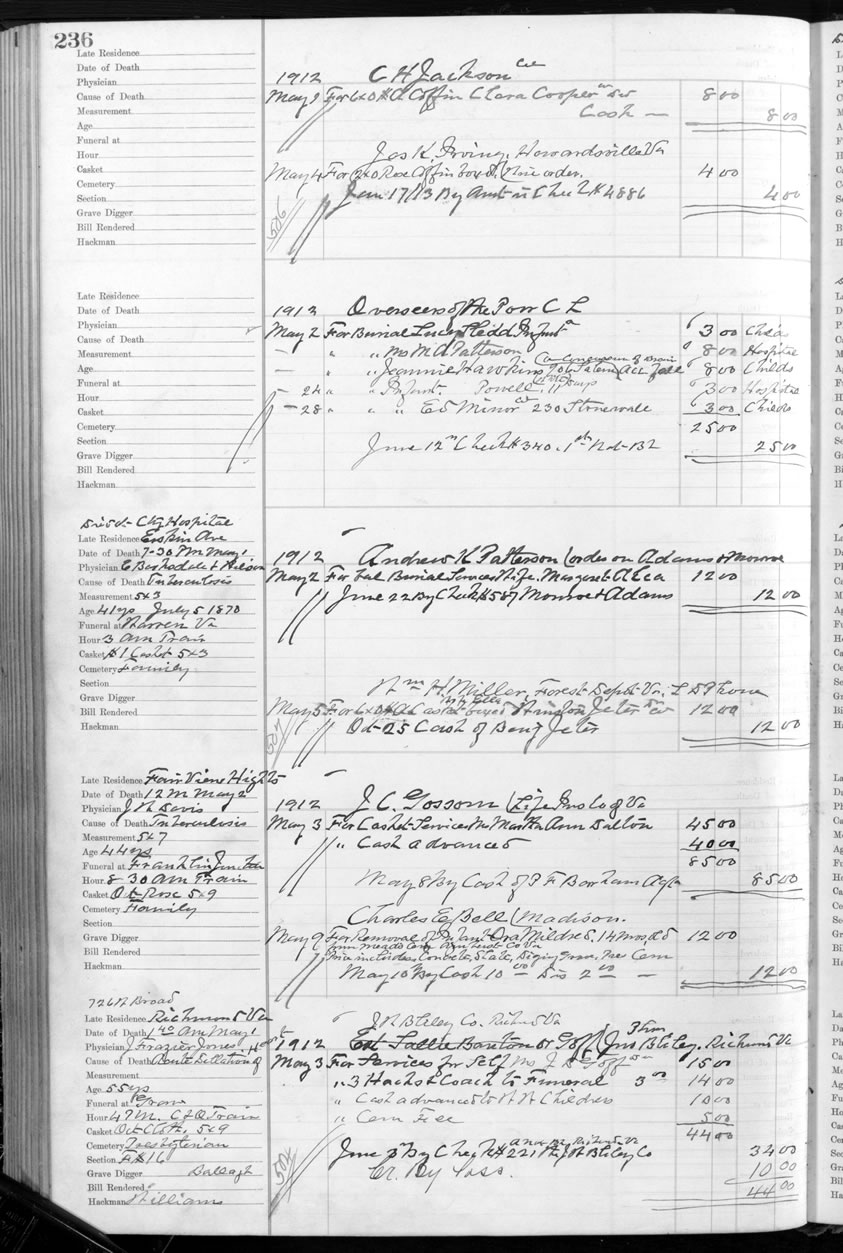 236
Late Residence
Date of Death
Physician
Cause of Death
Measurement
Age
Funeral at
Hour
Casket
Cemetery
Section
Grave Digger
Bill Rendered
Hackman
1912 C H Jackson
May 9 For 6x0 Coffin Clara Cooper 8 00
Cash — 8 00
Jas K. Irving, Howardsville Va
May 4 For 2x0 Rose Coffin boxed, order. 4 00
Jan 17/13 By Check # 4886 4 00
506
Late Residence
Date of Death
Physician
Cause of Death
Measurement
Age
Funeral at
Hour
Casket
Cemetery
Section
Grave Digger
Bill Rendered
Hackman
1912 Overseers of the Poor C L
May 2 For Burial Infant 3 00 Childs
— " " M A Patterson 8 00 Hospital
— " " Jeannie Hawkins 8 00 Childs
— 24 " " Infant Powell, 11 days 3 00 Hospital
— 28 " " " E S Minor 230 Stonewall 3 00 Childs
25 00
June 12 Check # 340. 1st Nat Bk 25 00
City Hospital
Late Residence Erskin Ave
Date of Death 7-30 PM May 1
Physician Barksdale &
Cause of Death Tuberculosis
Measurement 5x3
Age 41 yrs July 5 1870
Funeral at Warren Va
Hour 3 am Train
Casket #1 Casket 5x3
Cemetery Family
Section
Grave Digger
Bill Rendered
Hackman
1912 Andrew K Patterson (order on Adams & Monroe
May 2 For Burial Services Wife. Margaret 12 00
June 22 By Check # 587 Monroe & Adams 12 00
Wm H. Miller, Forest Depot Va,
May 5 For Casket boxed Jeter 12 00
Oct 25 Cash of Benj Jeter 12 00
507
Late Residence Fair View Hights
Date of Death 12 M May 2
Physician Davis
Cause of Death Tuberculosis
Measurement 5x7
Age 44 yrs
Funeral at Franklin Junction
Hour 8-30 Am Train
Casket Oct Rose 5x9
Cemetery Family
Section
Grave Digger
Bill Rendered
Hackman
1912 J. C. Gossom (Life Ins Co of Va
May 3 For Casket Services Mrs Martha Ann Dalton 45 00
" Cash advanced 40 00
85 00
May 8 By Cash of Barham 85 00
Charles E. Bell (Madison.
May 9 For Removal of Infant Ora Mildred, 14 mos old 12 00
from Meads Cem Amherst Co Va
Price includes Concrete, Slate, Diging grave, New Cem
May 10 By Cash 10 00 Dis 2 00 — 12 00
726 N Broad
Late Residence Richmond Va
Date of Death 1 40 Am May 1
Physician J Frazier Jones,
Cause of Death Acute Dilation of
Measurement
Age 55 yrs
Funeral at Grave
Hour 4 P M. C & O Train
Casket Oct Cloth, 5x9
Cemetery Presbyterian
Section F # 16
Grave Digger Ballagh
Bill Rendered
Hackman Williams
Bliley Co. Richmd Va
1912 Est Sallie Goff (Jno Bliley. Richmd Va
May 3 For Services for Self Goff 15 00
" 3 Hacks & Coach to Funeral 3 00 14 00
" Cash advanced to Childress 10 00
" Cem Fee 5 00
44 00
June By Check # 221 Bliley Co 34 00
Cr. By Loss. 10 00
44 00